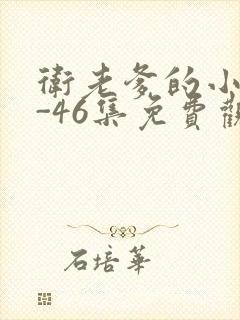 衛老爹的小
-46集免費觀
石培華